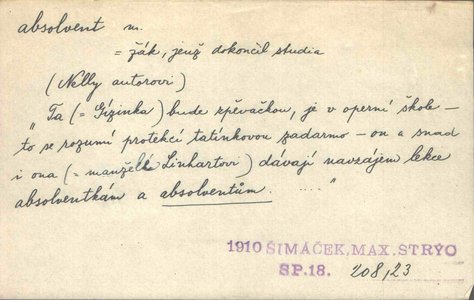 absolvent m.
= žák, jenž dokončil studia
(Nelly autorovi)
„Ta (= Gizinka) bude zpěvačkou, je v operní škole –
to se rozumí protekcí tatínkovou zadarmo – on a snad
i ona (= manželé Linhartovi) dávají navzájem lekce
absolventkám a absolventům. ....."
1910 ŠIMÁČEK, MAX. STRÝC
SP. 18. 208,23